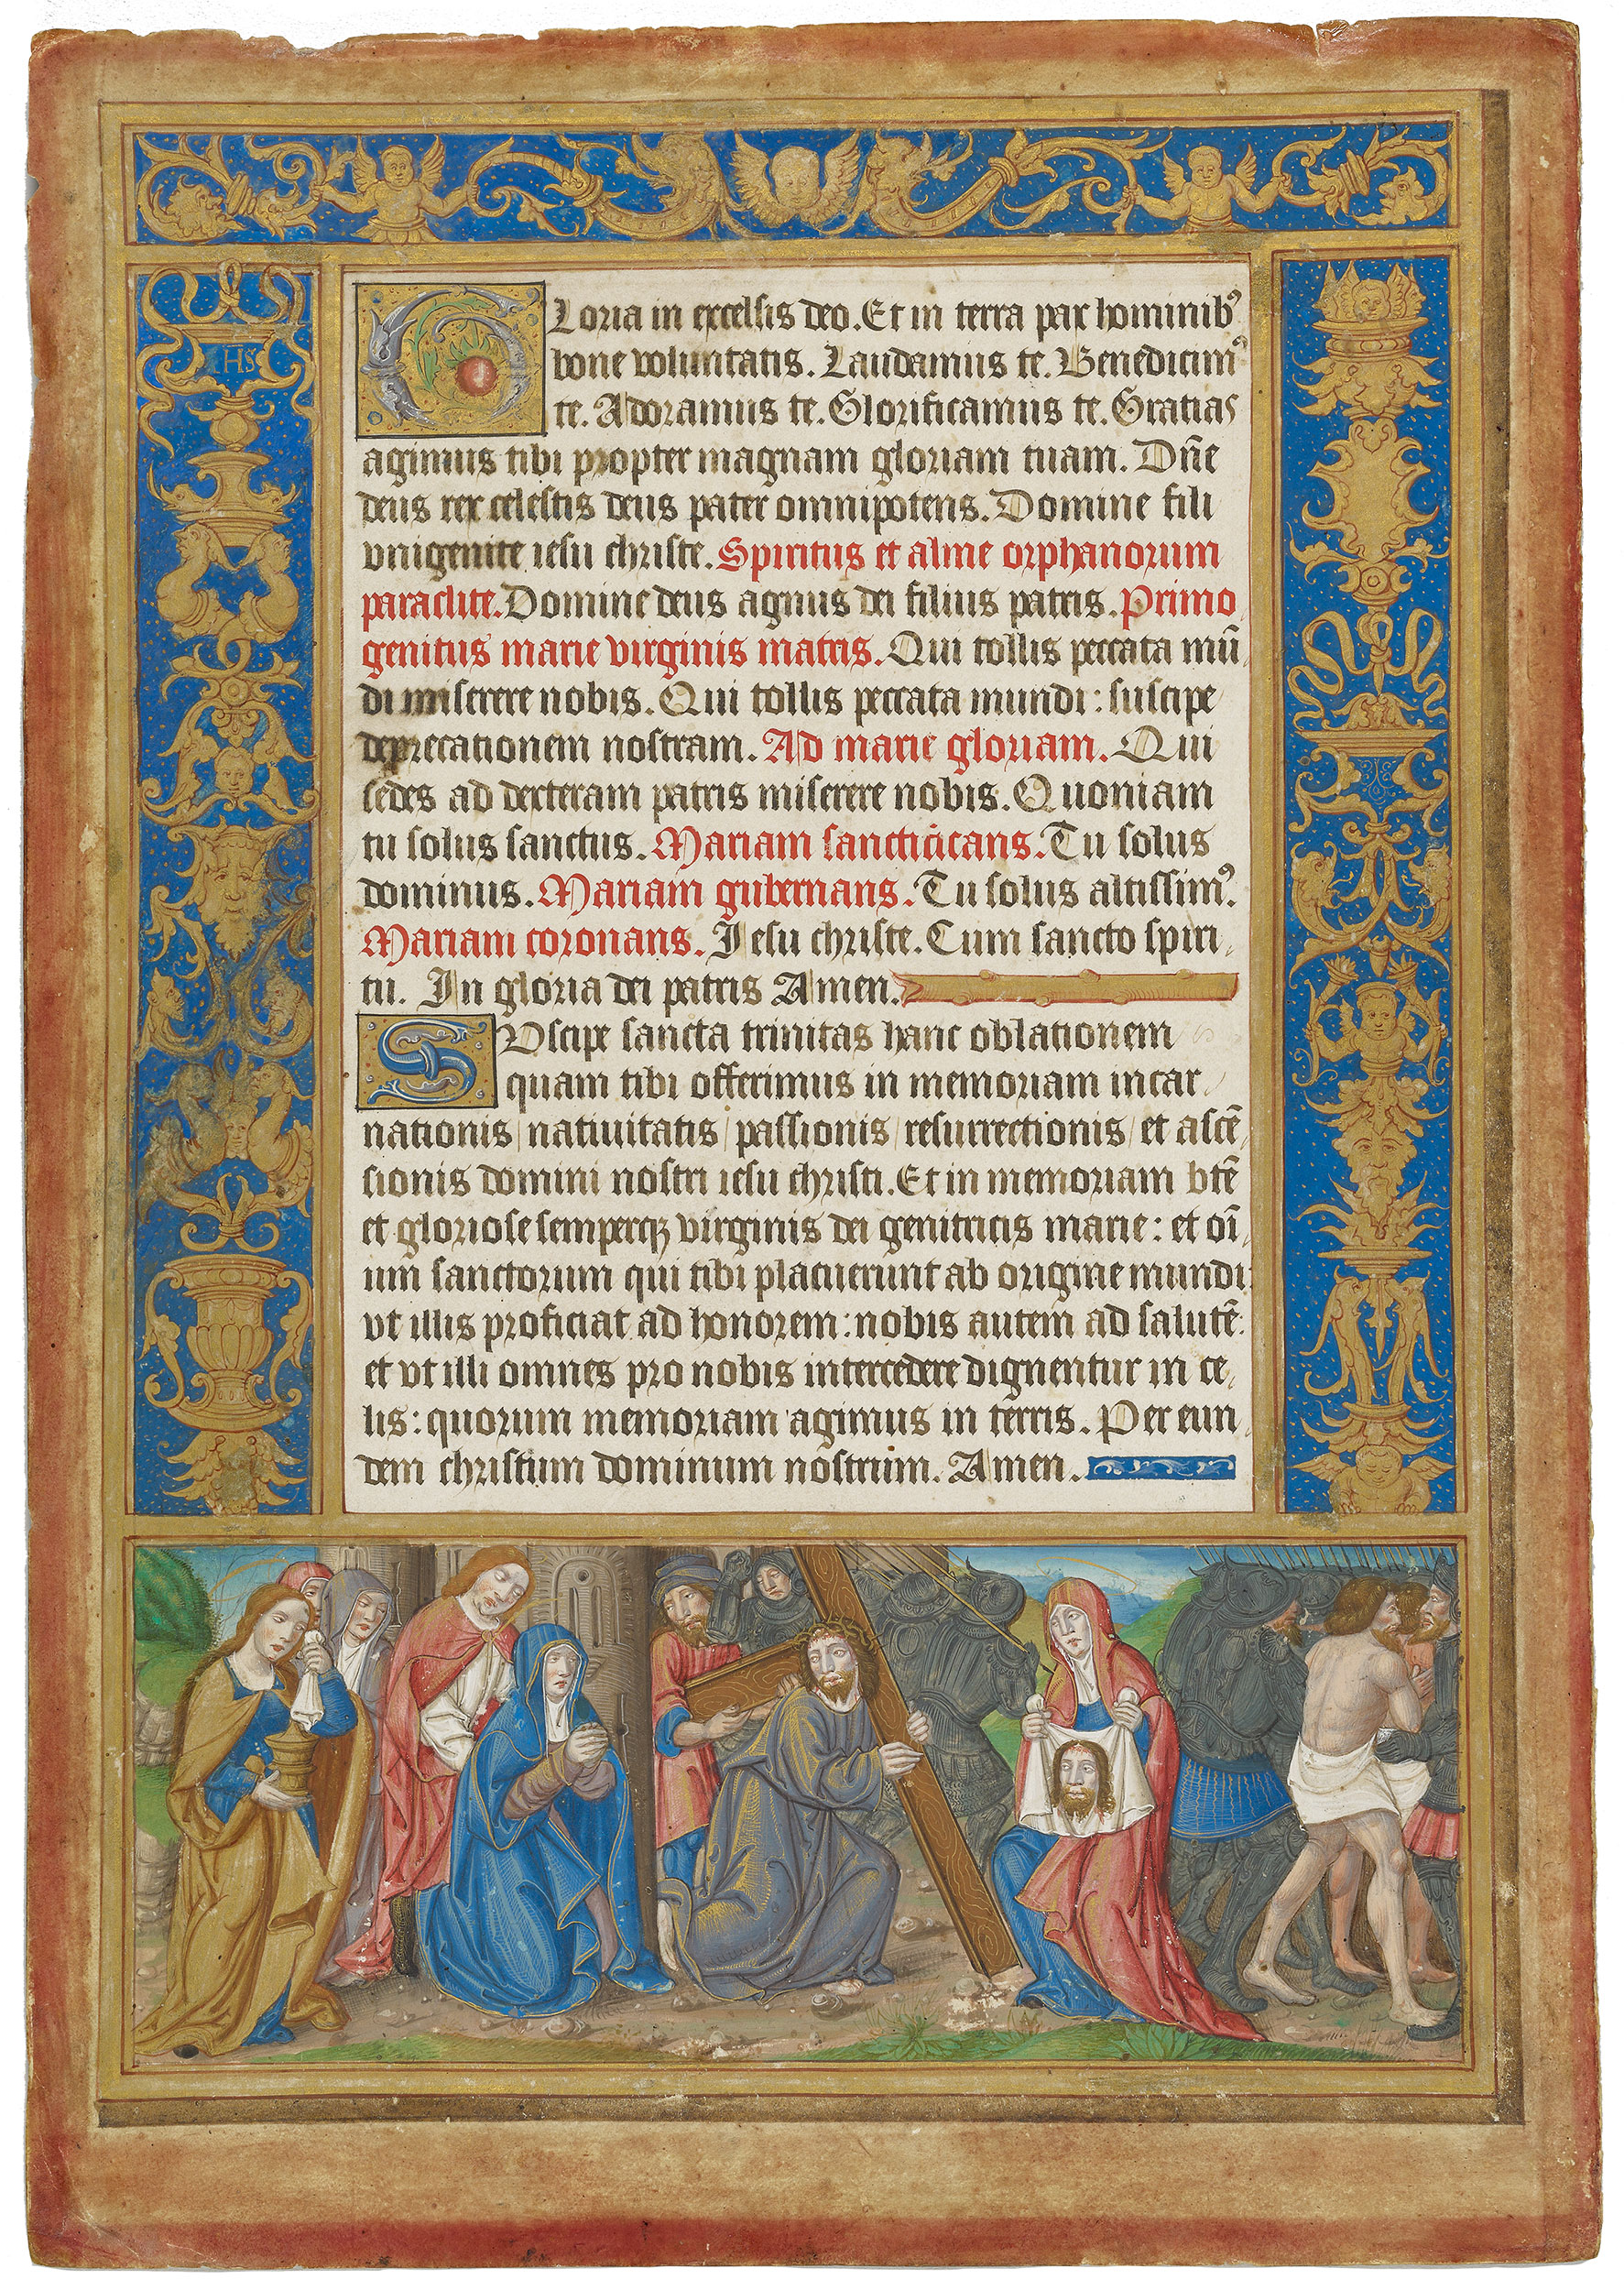 IHS
GLoria in excelsis deo. Et in terra pax hominibꝰ
bone voluntatis. Laudamus te. Benedicimꝰ
te. Adoramus te. Glorificamus te. Gratias
agimus tibi propter magnam gloriam tuam. Dn̄e
deus rex celestis deus pater omnipotens. Domine fili
vnigenite iesu christe. Spiritus et alme orphanorum
paraclite. Domine deus agnus dei filius patris. Primo
genitus marie virginis matris. Qui tollis peccata mū
di miserere nobis. Qui tollis peccata mundi: suscipe
deprecationem nostram. Ad marie gloriam. Qui
sedes ad dexteram patris miserere nobis. Quoniam
tu solus sanctus. Mariam sanctificans. Tu solus
dominus. Mariam gubernans. Tu solus altissimꝰ.
Mariam coronans. Iesu christe. Cum sancto spiri
tu. In gloria dei patris Amen.
SVscipe sancta trinitas hanc oblationem
quam tibi offerimus in memoriam incar
nationis / natiuitatis / passionis / resurrectionis / et ascē
sionis domini nostri iesu christi. Et in memoriam btē
et gloriose semperqꝫ virginis dei genitricis marie: et oī
um sanctorum qui tibi placuerunt ab origine mundi
vt illis proficiat ad honorem: nobis autem ad salutē:
et vt illi omnes pro nobis intercedere dignentur in ce
lis: quorum memoriam agimus in terris. Per eun
dem christum dominum nostrum. Amen.